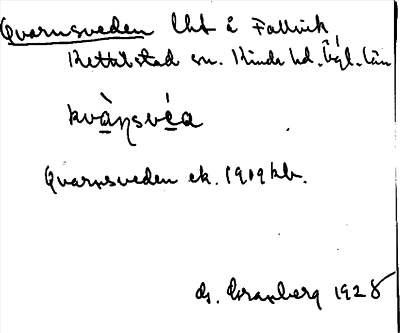 Qvarnsveden lht å Fallvik
Kettilstad sn. Kinda hd. Ögl. län
kvàṇsvéa
Qvarnsveden ek. 1909 kb.
G. Granberg 1928